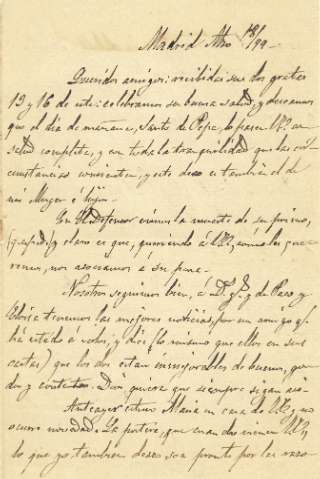 Madrid Mzo 18/99.-
Queridos amigos: recibidas sus dos gratas
13 y 16 de este: celebramos su buena salud, y deseamos
que el dia de mañana, Santo de Pepe, lo pasen Vs. con
salud completa, y con toda la tranquilidad que las cir-
cunstancias consienten, y esto desea tambien el de
mi Mujer é hijos.
En El Defensor vimos la muerte de su primo,
y claro es que, queriendo á Vs., como les que-
remos, nos asociamos á su pena.
Nosotros seguimos bien, á D. y de Paco y
Gloria tenemos las mejores noticias, por un amigo q.
ha estado á verlos, y dice (lo mismo que ellos en sus
cartas) que los dos estan inmejorables de buenos, gor-
dos y contentos. Dios quiera que siempre sigan asi.
Anteayer estuvo Maria en casa de Vs., y no
ocurre novedad. La portera, que cuando vienen Vs.,
lo que yo tambien deseo sea pronto por las razo-